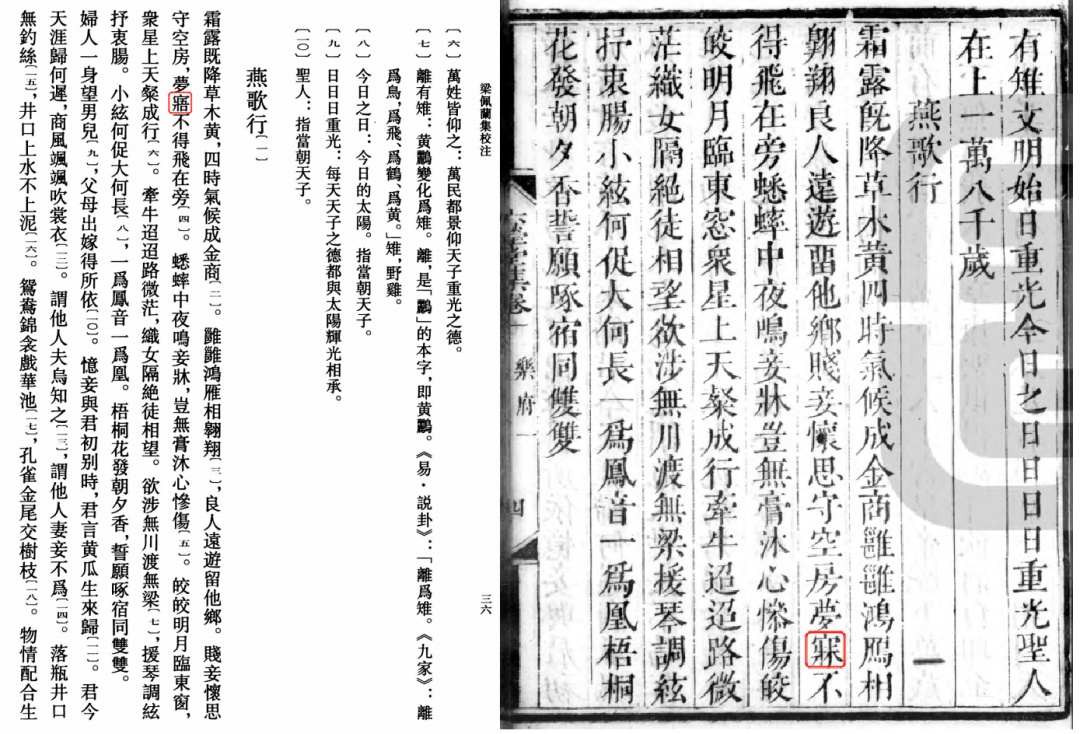 梁佩蘭集校注
三六
〔六〕萬姓皆仰之:萬民都景仰天子重光之德。
〔七〕離有雉:黄鸝變化爲雉。離,是「鸝」的本字,即黄鸝。《易·説卦》:「離爲雉。《九家》:離
爲鳥,爲飛、爲鶴、爲黄。」雉,野雞。
〔八〕今日之日:今日的太陽。指當朝天子。
〔九〕日日日重光:每天天子之德都與太陽輝光相承。
〔一〇〕聖人:指當朝天子。
燕歌行〔一〕
霜露既降草木黄,四時氣候成金商〔二〕。雝雝鴻雁相翱翔〔三〕,良人遠遊留他鄉。賤妾懷思
守空房,夢寤不得飛在旁〔四〕。蟋蟀中夜鳴妾牀,豈無膏沐心慘傷〔五〕。皎皎明月臨東窗,
衆星上天粲成行〔六〕。牽牛迢迢路微茫,織女隔絶徒相望。欲涉無川渡無梁〔七〕,援琴調絃
抒衷腸。小絃何促大何長〔八〕,一爲鳳音一爲凰。梧桐花發朝夕香,誓願啄宿同雙雙。
婦人一身望男兒〔九〕,父母出嫁得所依〔一〇〕。憶妾與君初别時,君言黄瓜生來歸〔一一〕。君今
天涯歸何遲,商風颯颯吹裳衣〔一二〕。謂他人夫烏知之〔一三〕,謂他人妻妾不爲〔一四〕。落瓶井口
無釣絲〔一五〕,井口上水不上泥〔一六〕。鴛鴦錦衾戲華池〔一七〕,孔雀金尾交樹枝〔一八〕。物情配合生
有雉文明始日重光今日之日日日日重光聖人
在上一萬八千歲
燕歌行 一
霜露既降草木黄四時氣候成金商雝雝鴻鴈相
翱翔良人遠遊畱他鄉賤妾懷思守空房夢寐不
得飛在旁蟋蟀中夜鳴妾牀豈無膏沐心慘傷皎
皎明月臨東窓衆星上天粲成行牽牛迢迢路微
茫織女隔絶徒相望欲涉無川渡無梁援琴調絃
抒衷腸小絃何促大何長一爲鳳音一爲凰梧桐
花發朝夕香誓願啄宿同雙雙
六瑩堂集卷一 樂府一 四